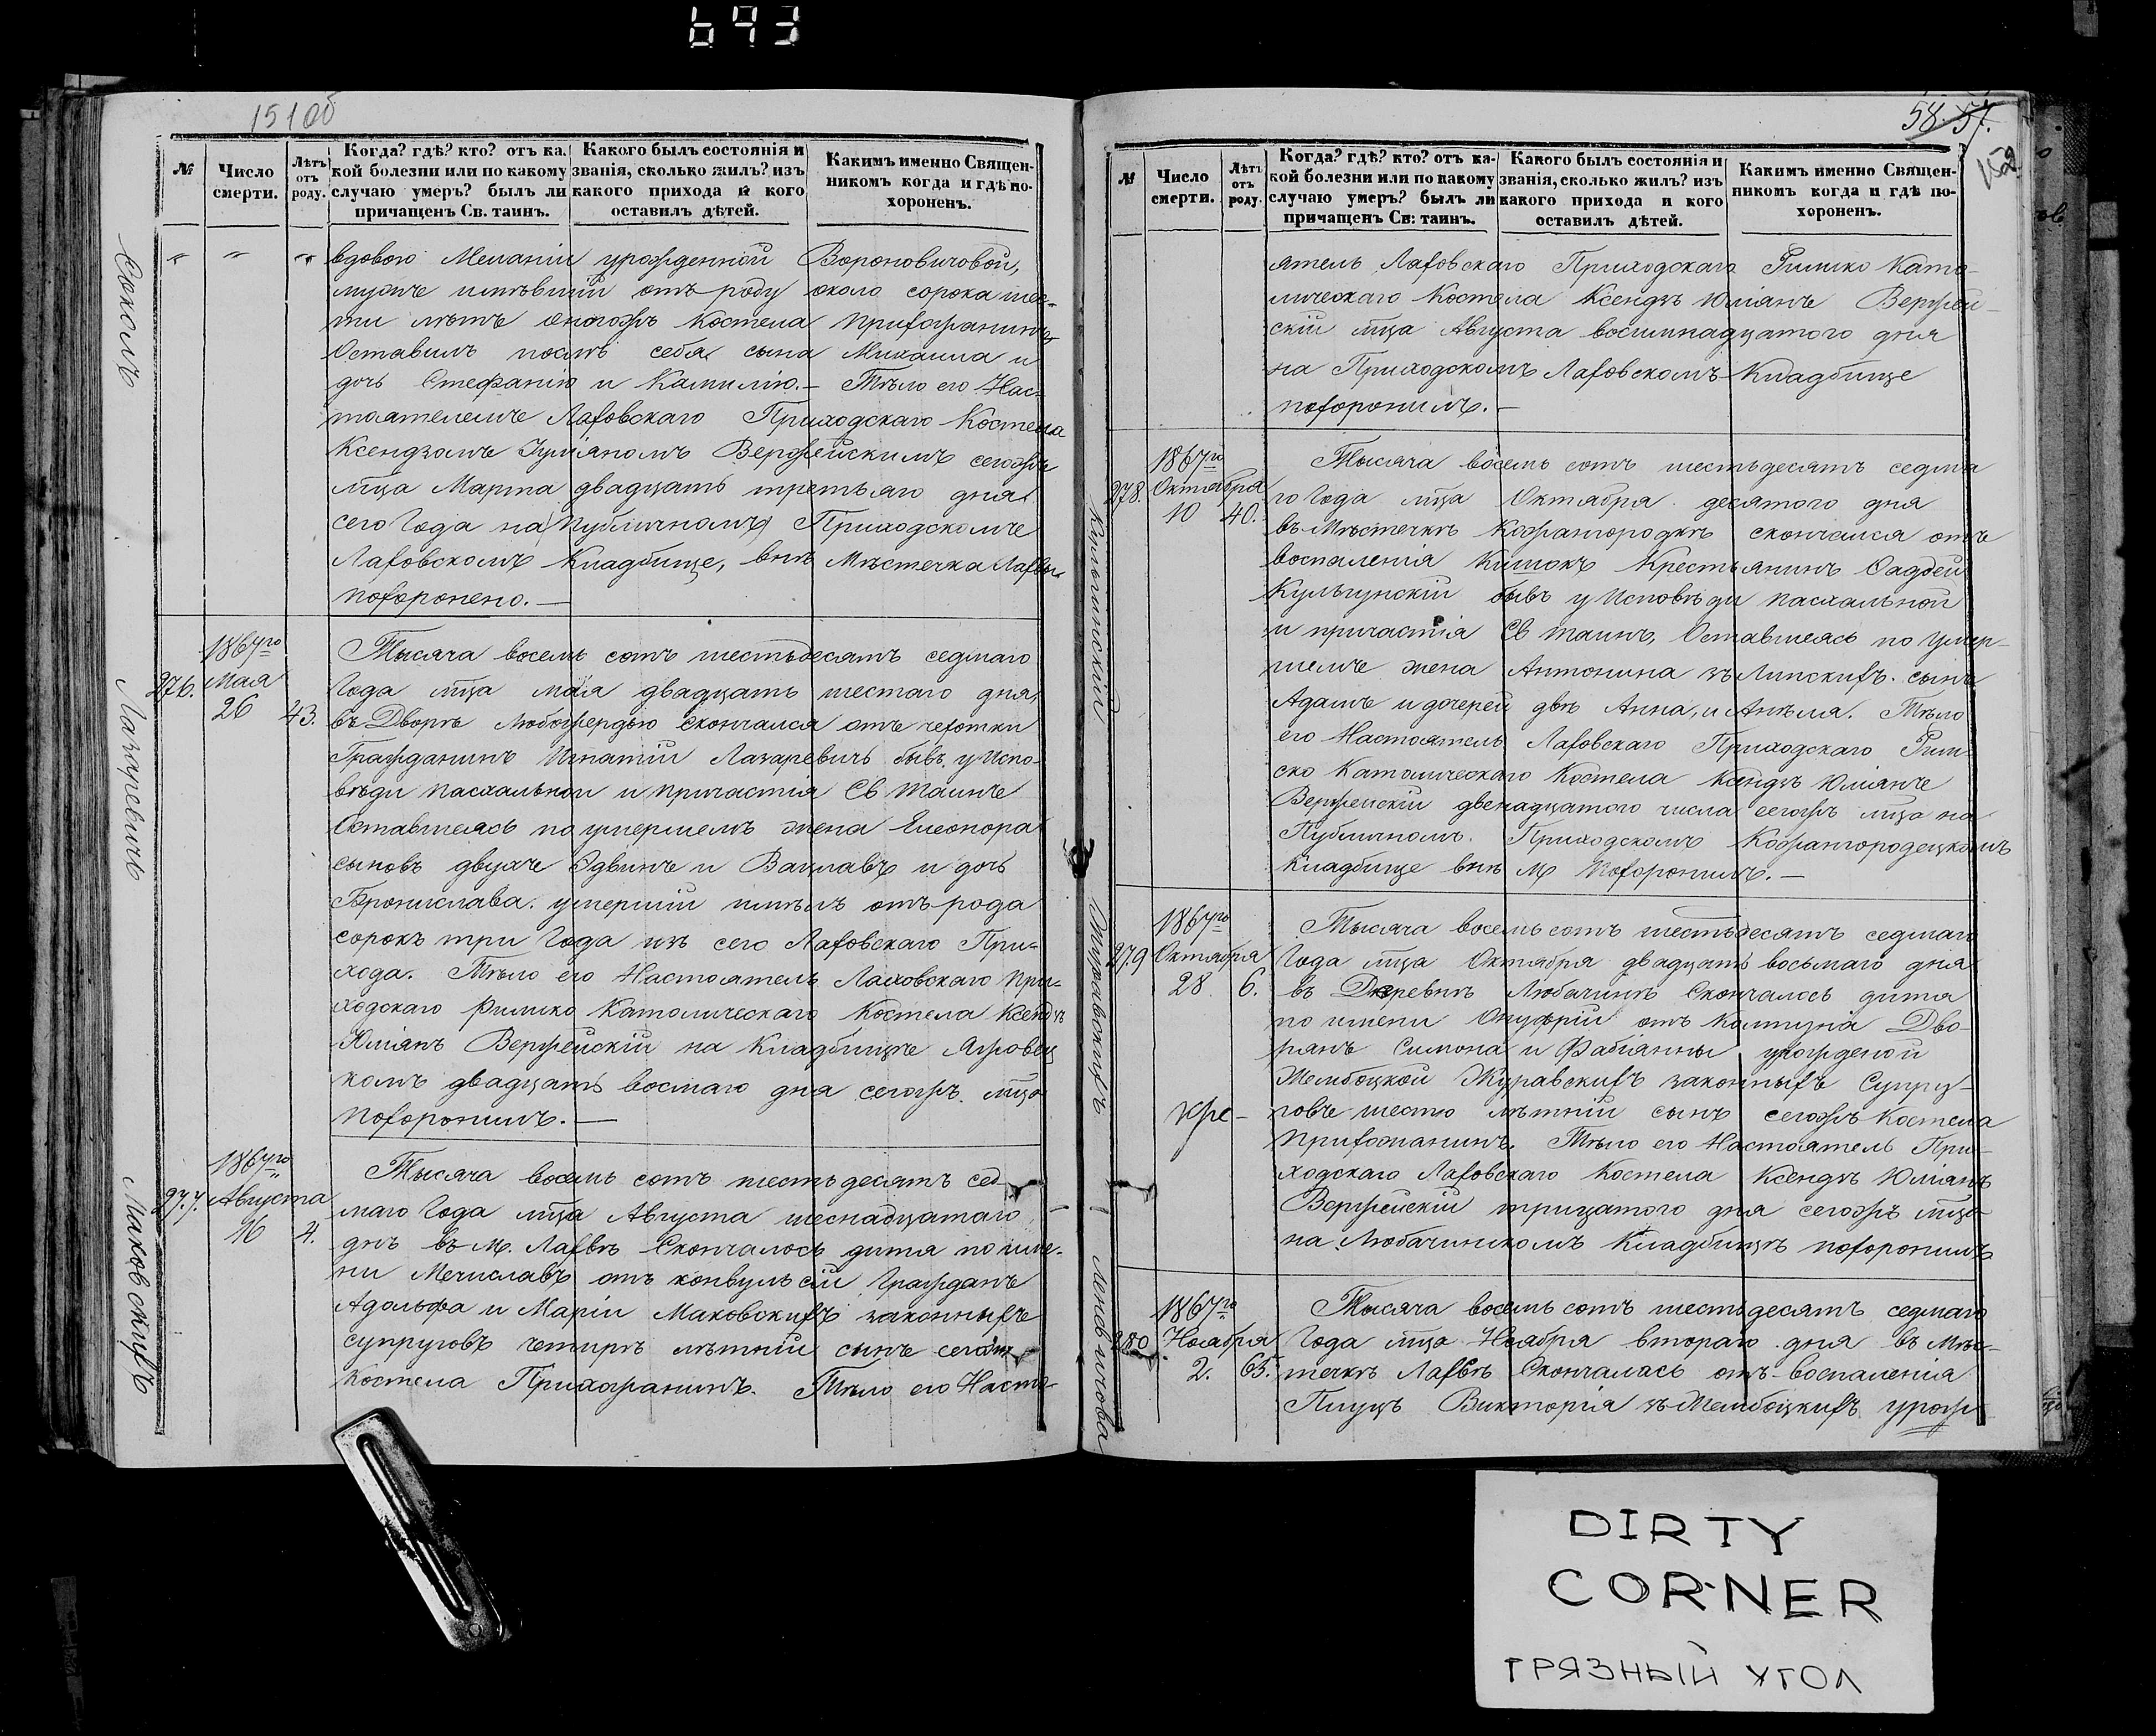 693
151 об
№
Число смерти.
Лѣтъ отъ роду.
Когда? гдѣ? кто? отъ ка-
кой болезни или по какому
случаю умеръ? былъ ли
причащенъ Св. таинъ.
Какого былъ состоянія и
званія, сколько жилъ? изъ
какого прихода и кого
оставилъ дѣтей.
Каким именно Священ-
никомъ когда и гдѣ по-
хороненъ.
Соколъ
вдовою Меланіи урожденной Вороновичовой,
мужъ имѣвшій отъ роду около сорока шес-
ти лѣтъ оногожъ Костела Прихожанинъ
Оставилъ послѣ себя сына Михаила и
дочь Стефанію и Камилію. — Тѣло его Нас-
тоятелемъ Лахвскаго Приходскаго Костела
Ксендзомъ Юліаномъ Вержейскимъ сегожъ
мца Марта двадцать третьяго дня
сего Года на Публичномъ Приходскомъ
Лаховскомъ Кладбище, внѣ Мѣстечка Лахвы
похоронено. —
Лазаревичъ
276.
1867го
Мая
26
43.
Тысяча восемь сотъ шестьдесятъ седмаго
Года мца мая двадцать шестаго дня,
въ Дворѣ Любожердью скончался отъ чехотки
Гражданинъ Игнатій Лазаревичъ бывъ у Испо-
вѣди пасхальной и причастія Св Таинъ
Оставшеясь по умершемъ жена Елеонора
сыновъ двухъ Эдвинъ и Вацлавъ и дочь
Бронислава. умершій имѣлъ отъ рода
сорокъ три Года изъ сего Лаховскаго При-
хода. Тѣло его Настоятель Лаховскаго При-
ходскаго Римско Католическаго Костела Ксендзъ
Юліанъ Вержейскій на Кладбищѣ
комъ двадцать восмаго дня сегожъ мца
похоронилъ. —
Маковскихъ
277.
1867го
Августа
16
4.
Тысяча восемь сотъ шестьдесятъ сед-
маго Года мца Августа шеснадцатаго
днѣ въ М. Лахвѣ Скончалось дитя по име-
ни Мечиславъ отъ конвульсіи Гражданъ
Адольфа и Маріи Маковскихъ законныхъ
супруговъ четырѣ лѣтній сынъ сегожъ
Костела Прихожанинъ. Тѣло его Насто-
58. 57.
152
№
Число смерти.
Лѣтъ отъ роду.
Когда? гдѣ? кто? отъ ка-
кой болезни или по какому
случаю умеръ? былъ ли
причащенъ Св: таинъ.
Какого былъ состоянія и
званія, сколько жилъ? изъ
какого прихода и кого
оставилъ дѣтей.
Каким именно Священ-
никомъ когда и гдѣ по-
хороненъ.
ятель Лаховскаго Приходскаго Римско Като-
лическаго Костела Ксендзъ Юліанъ Вержей-
скій мца Августа восимнадцатого дня
на Приходскомъ Лаховскомъ Кладбище
похоронилъ. —
278.
1867го
Октября
10
40.
Тысяча восемь сотъ шестьдесятъ седма
го Года мца Октября десятого дня
въ Мѣстечкѣ Кожангородкѣ скончался отъ
воспаленія Кишокъ Крестьянинъ Фадѣй
бывъ у Исповѣди пасхальной
и причастія Св таинъ, Оставшеясь по умер-
шемъ жена Антонина зъ Липскихъ. сынъ
Адамъ и дочерей двѣ Анна, и Анѣля. Тѣло
его Настоятель Лаховскаго Приходскаго Рим-
ско Католическаго Костела Ксендзъ Юліанъ
Вержейскій двенадцатого числа сегожъ мца на
Публичномъ Приходскомъ Кожангородецкомъ
Кладбище внѣ М Похоронилъ. —
Журавскихъ
279
1867го
Октября
28
6.
Тысяча восемь сотъ шестьдесятъ седмаго
Года мца Октября двадцать восьмаго дня
въ Деревнѣ Любачинѣ Скончалось дитя
по имени Онуфрій отъ Двo-
рянъ Симона и Фабіанны урожденой
Жембоцкой Журавскихъ законныхъ Супру-
говъ шесто лѣтній сынъ сегожъ Костела
Прихожанинъ. Тѣло его Настоятель При-
ходскаго Лаховскаго Костела Ксендзъ Юліанъ
Вержейскій тридцатого дня сегожъ мца
на Любачинскомъ Кладбищѣ похоронилъ
280
1867го
Ноября
2.
65.
Тысяча восемь сотъ шестьдесятъ седмаго
Года мца Ноября втораго дня въ Мѣс-
течкѣ Лахвѣ Скончалась отъ воспаленія
Плуцъ Викторія зъ Жембоцкихъ урож-
DIRTY
CORNER
ГРЯЗНЫЙ УГОЛ